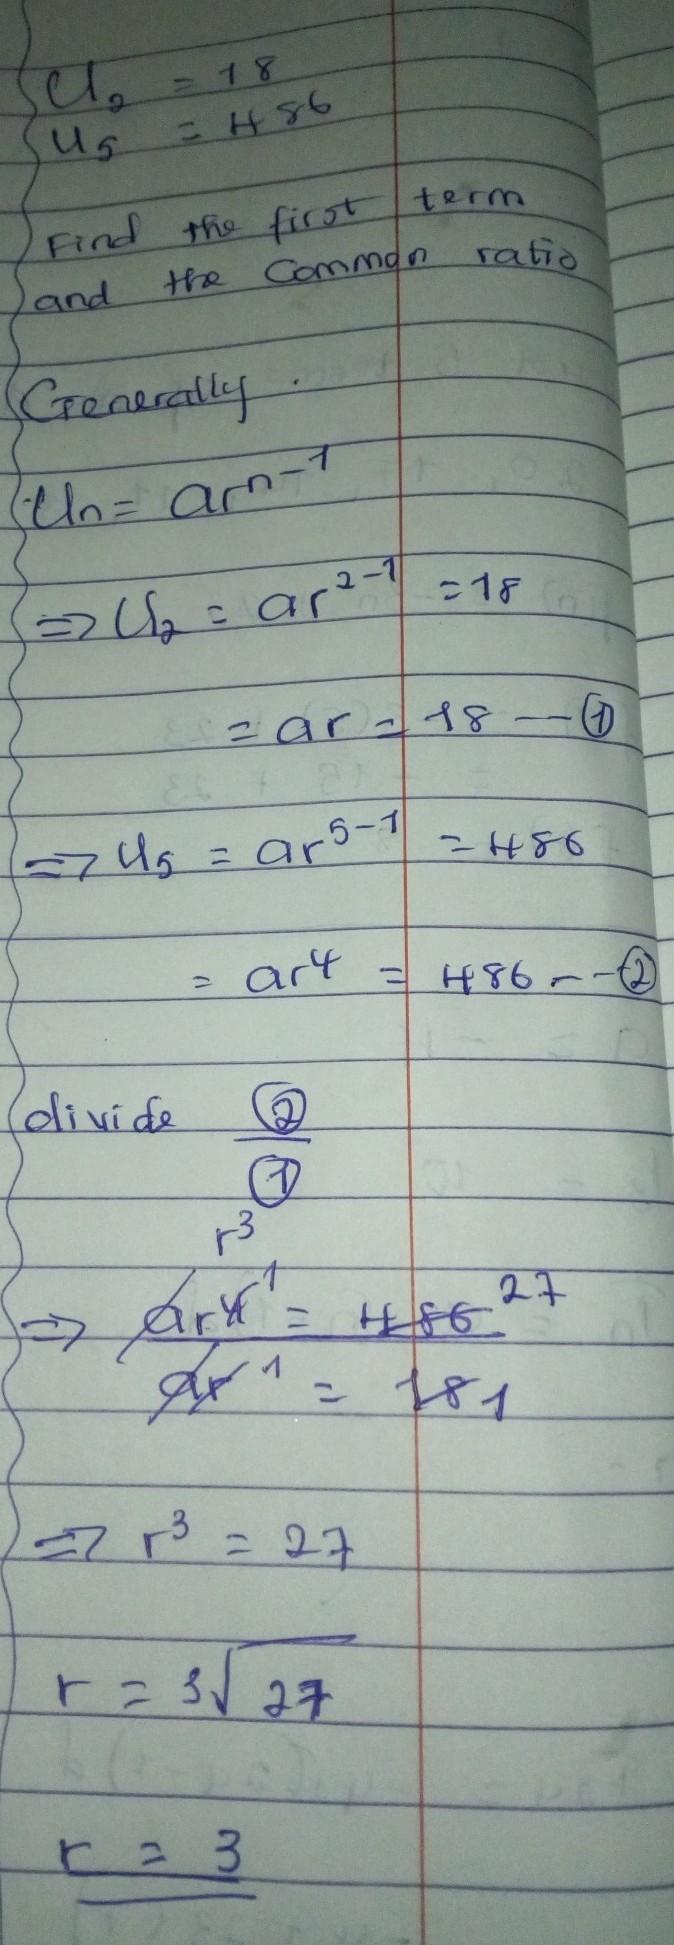 U₂ = 18
U₅ = 486
Find the first term
and the Common ratio
Generally.
Uₙ = arⁿ⁻¹
⇒ U₂ = ar²⁻¹ = 18
= ar = 18 — ①
⇒ U₅ = ar⁵⁻¹ = 486
= ar⁴ = 486 - - ②
divide ②
①
r³
⇒ ar⁴ ¹ = 486 27
ar ¹ = 18 1
⇒ r³ = 27
r = ³√27
r = 3